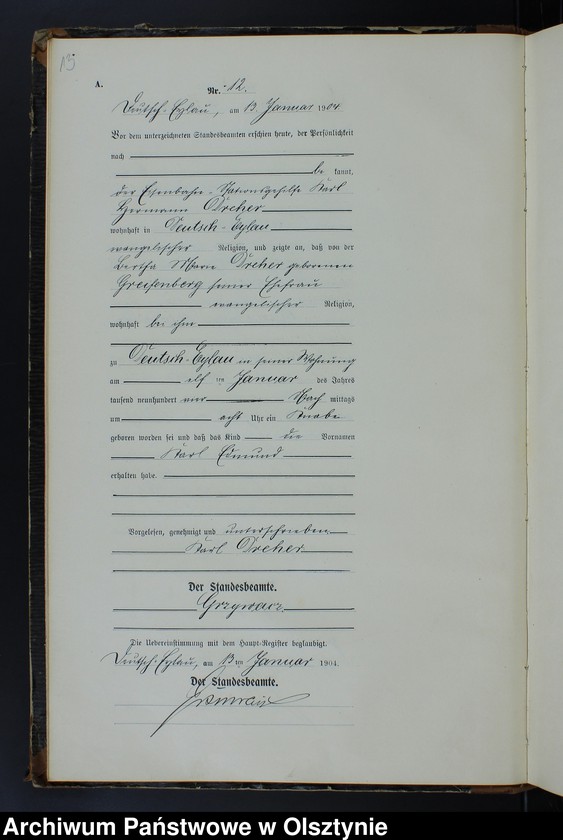 15
A.
Nr. 12.
Deutsch-Eylau, am 13. Januar 1904.
Vor dem unterzeichneten Standesbeamten erschien heute, der Persönlichkeit
nach
be kannt,
der Eisenbahn-Stationsgehilfe Karl
Hermann Dreher
wohnhaft in Deutsch-Eylau
evangelischer Religion, und zeigte an, daß von der
Bertha Marie Dreher geborenen
Greifenberg seiner Ehefrau
evangelischer Religion,
wohnhaft bei ihm
zu Deutsch-Eylau in seiner Wohnung
am elf ten Januar des Jahres
tausend neunhundert vier Nach mittags
um acht Uhr ein Knabe
geboren worden sei und daß das Kind die Vornamen
Karl Edmund
erhalten habe.
Vorgelesen, genehmigt und unterschrieben
Karl Dreher
Der Standesbeamte.
Grzywacz
Die Uebereinstimmung mit dem Haupt-Register beglaubigt.
Deutsch-Eylau, am 13 ten Januar 1904.
Der Standesbeamte.
Archiwum Państwowe w Olsztynie